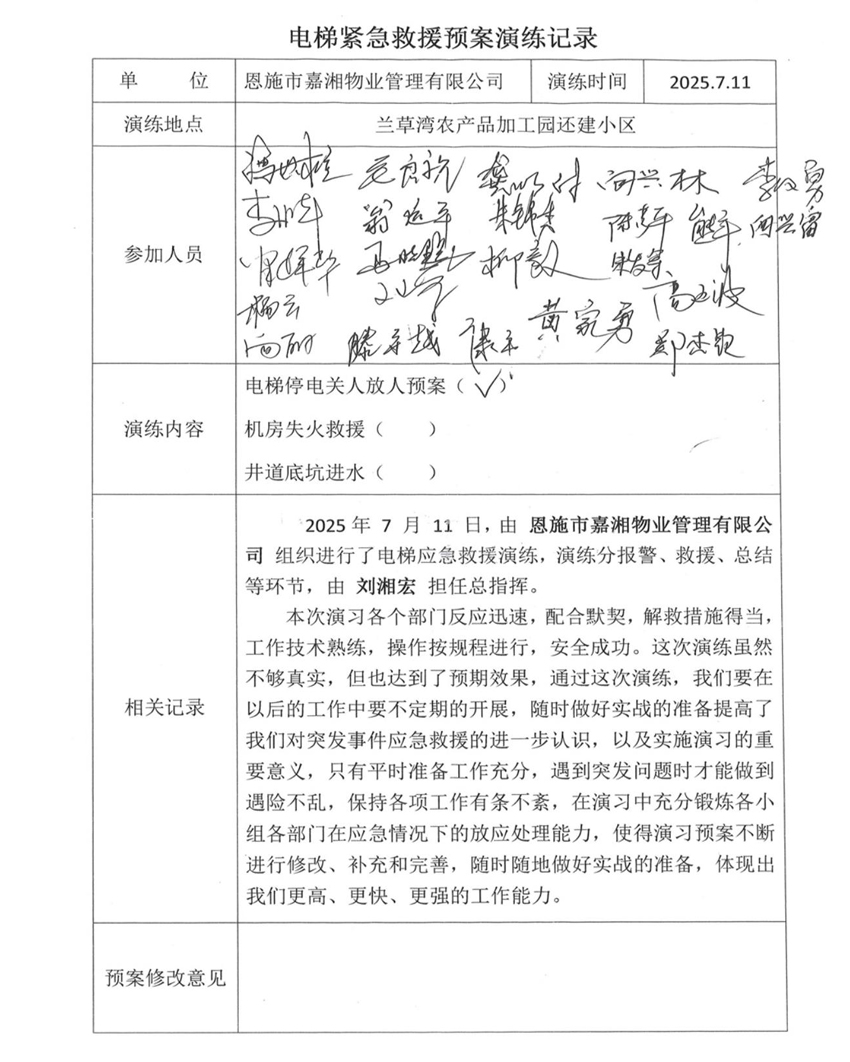 电梯紧急救援预案演练记录
单 位 恩施市嘉湘物业管理有限公司 演练时间 2025.7.11
演练地点 兰草湾农产品加工园还建小区
向兴林
参加人员
柳毅
杨云
黄家勇
康平
电梯停电关人放人预案（√）
演练内容 机房失火救援（ ）
井道底坑进水（ ）
2025 年 7 月 11 日，由 恩施市嘉湘物业管理有限公
司 组织进行了电梯应急救援演练，演练分报警、救援、总结
等环节，由 刘湘宏 担任总指挥。
本次演习各个部门反应迅速，配合默契，解救措施得当，
工作技术熟练，操作按规程进行，安全成功。这次演练虽然
不够真实，但也达到了预期效果，通过这次演练，我们要在
相关记录 以后的工作中要不定期的开展，随时做好实战的准备提高了
我们对突发事件应急救援的进一步认识，以及实施演习的重
要意义，只有平时准备工作充分，遇到突发问题时才能做到
遇险不乱，保持各项工作有条不紊，在演习中充分锻炼各小
组各部门在应急情况下的放应处理能力，使得演习预案不断
进行修改、补充和完善，随时随地做好实战的准备，体现出
我们更高、更快、更强的工作能力。
预案修改意见